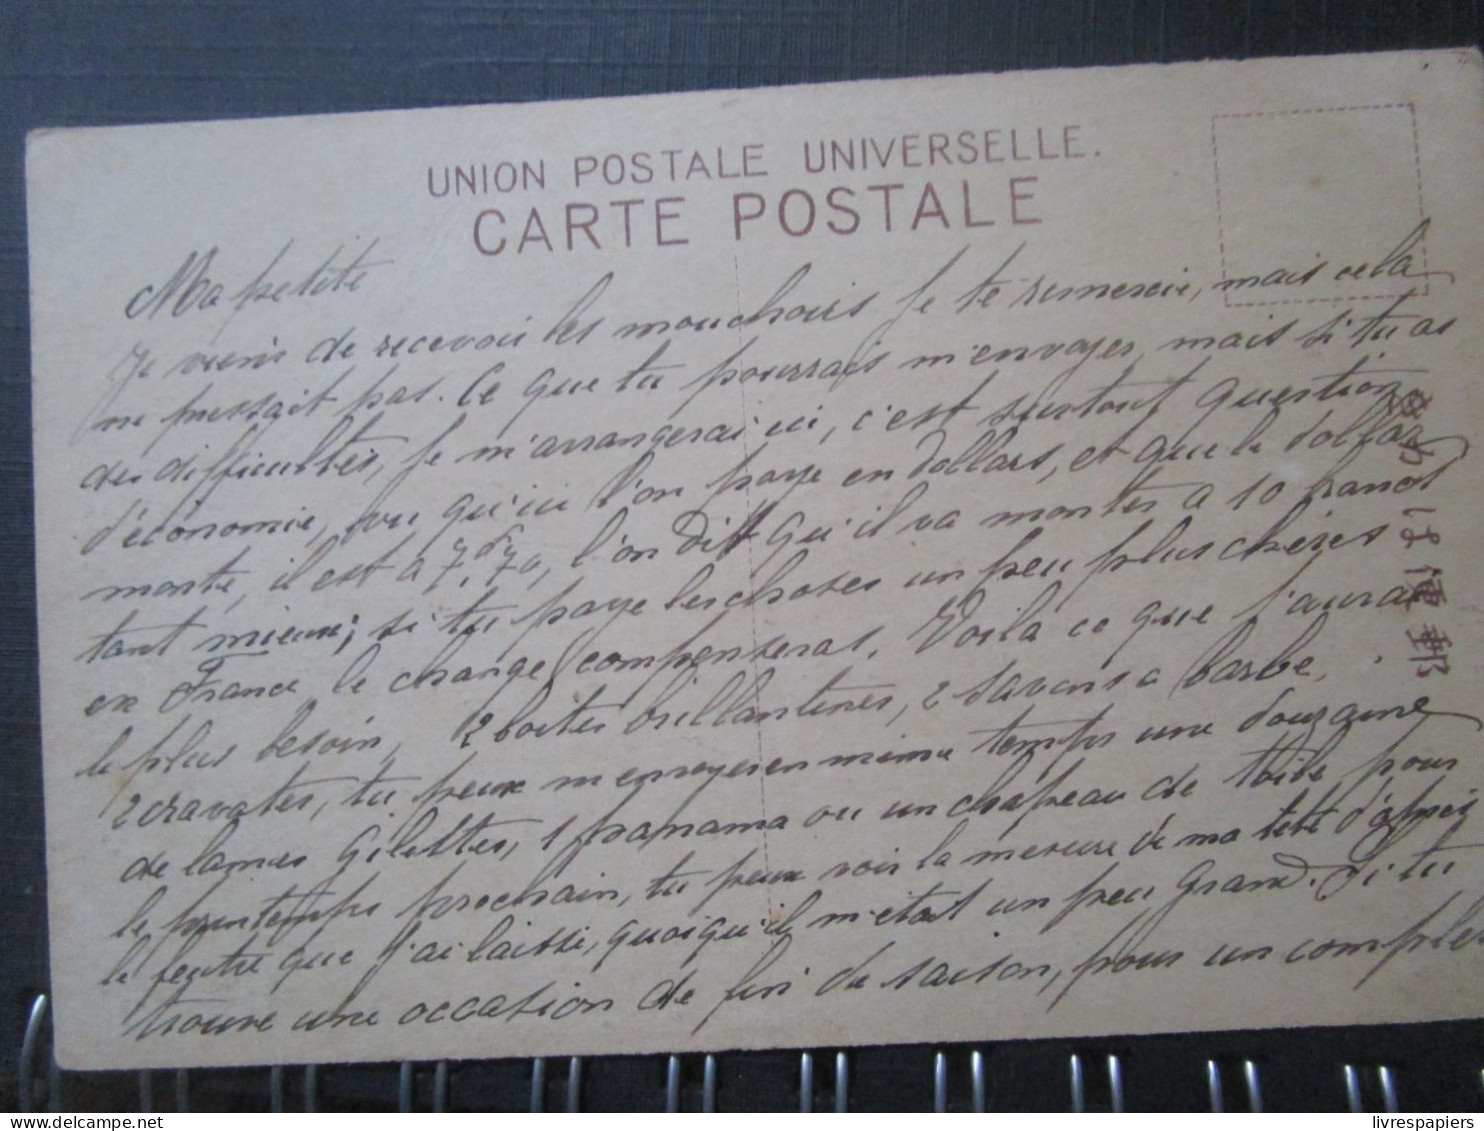 UNION POSTALE UNIVERSELLE.
CARTE POSTALE
Ma petite
Je viens de recevoir les mouchoirs je te remercie, mais cela
ne pressait pas. Ce que tu pourrais m'envoyer, mais si tu as
des difficultés, je m'arrangerai ici, c'est surtout question
d'économie, vu qu'ici l'on paye en dollars, et que le dollar
monte, il est à 7,f70, l'on dit qu'il va monter à 10 francs
tant mieux; si tu paye les choses un peu plus chères
en France le change compensera. Voilà ce que j'aurai
le plus besoin, 2 boites brillantines, 2 savons a barbe,
2 cravates, tu peux m'envoyer en même temps une douzaine
de lames Gilettes, 1 panama ou un chapeau de toile pour
le printemps prochain, tu peux voir la mesure de ma tête d'après
le feutre que j'ai laissé, quoiqu'il m'était un peu grand. Si tu
trouve une occasion de fin de saison, pour un complet
きかは便郵
livrespapiers